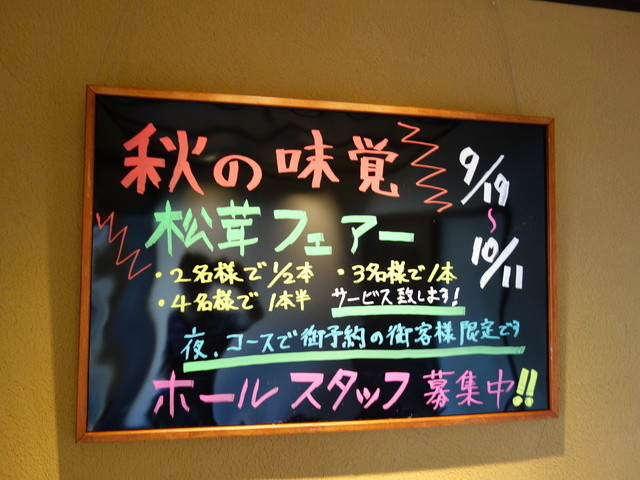 秋の味覚
9/19
〜
10/11
松茸フェアー
・2名様で1/2本 ・3名様で1本
・4名様で1本半 サービス致します!
夜、コースで御予約の御客様限定です
ホールスタッフ募集中!!